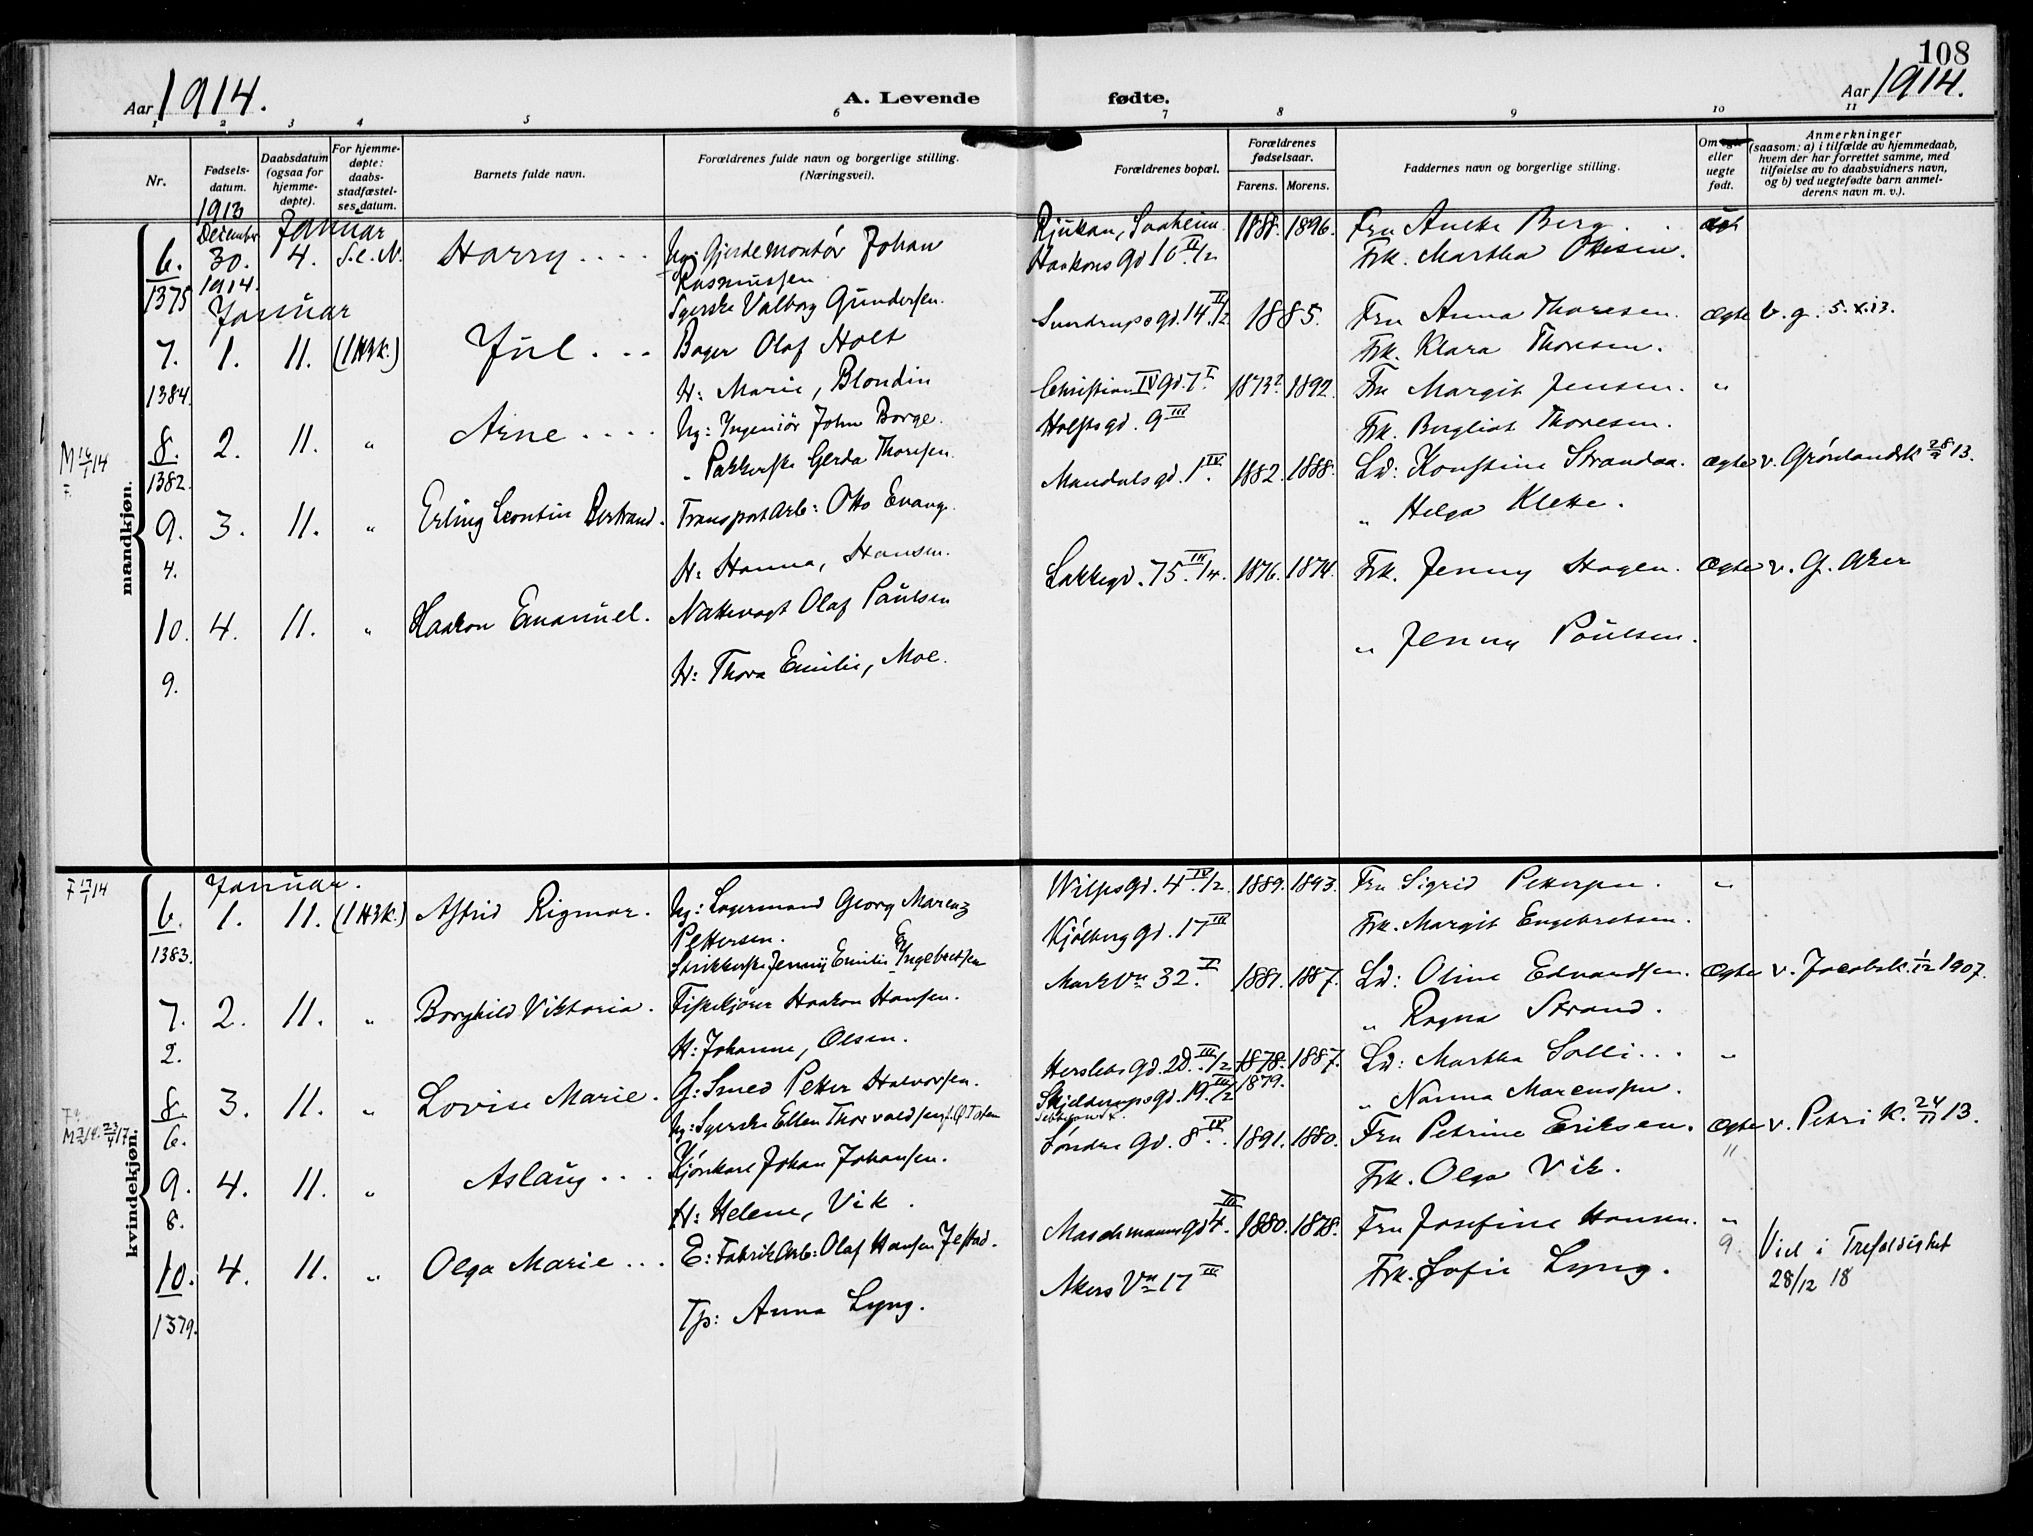 108
Aar 1914.
A. Levende fødte.
Aar 1914.
1 2 3 4 5 6 7 8 9 10 11
Nr.
Fødselsdatum.
Daabsdatum (ogsaa for hjemmedøpte).
For hjemmedøpte: daabsstadfæstelses datum.
Barnets fulde navn.
Forældrenes fulde navn og borgerlige stilling. (Næringsvei).
Forældrenes bopæl.
Forældrenes fødselsaar.
Farens. Morens.
Faddernes navn og borgerlige stilling.
Om ægte eller uegte født.
Anmerkninger
(saasom: a) i tilfælde av hjemmedaab,
hvem der har forrettet samme, med
tilføielse av to daabsvidners navn,
og b) ved uegtefødte barn anmelderens navn m. v.).
mandkjøn.
1913
December Januar
6. 30. 4. S.e.N. Harry Ug: Gjerdemontør Johan Rjukan, Saaheim 1888. 1896. Fru Berg
1375 1914. Rasmussen Haakons gd 16 II/2 Frk. Martha Ottesen.
Januar Syerske Valborg Gundersen.
7. 1. 11. (1 H3k.) Jul Bager Olaf Holt Sverdrups gd. 14 II/2 1885. Fru Anna Thoresen. Ægte b. g. 5.x.13.
1384. H: Marie, Blondin Frk. Klara Thoresen.
8. 2. 11. " Arne Ug: Ingeniør John Borge. Christian IV gd. 7 I 1873? 1892. Fru Margit Jensen. "
1382. " Pakkerske Gerda Thoresen. Holsts gd. 9 III Frk. Bergliot Thoresen.
M 16/1 14
F.
9. 3. 11. " Erling Leontin Bertrand. Transportarb: Otto Evang. Mandals gd. 1 IV 1882. 1888. Ld: Konstine Strandaa. Ægte v. Grønlandsk 28/9 13.
4. H: Hanna, Hansen. " Helga Klette.
10. 4. 11. " Haakon Emanuel. Nattevagt Olaf Paulsen Lakkegd. 75 III/4. 1876. 1874. Frk. Jenny Hagen. Ægte v. G. Aker
9. H: Thora Emilie, Moe. " Jenny Paulsen.
kvindekjøn.
F 17/1 14
Januar.
6. 1. 11. (1 H3k.) Astrid Rigmor. Ug: Lagermand Georg Marenz Wilses gd. 4 IV/2. 1889. 1893. Fru Sigrid Pettersen. "
1383. Pettersen. Kjølberg gd. 17 III Frk. Margit Engebretsen.
Strikkerske Jenny Emilie Engebretsen
7. 2. 11. " Borghild Viktoria. Fiskekjører Haakon Hansen. Mark Vn 32. V 1881. 1887. Ld: Oline Edvardsen. Ægte v. Jacobsk. 1/12 1907.
2. H: Johanne, Olsen. " Ragna Strand.
8. 3. 11. " Lovise Marie. G: Smed Petter Halvorsen. Herslebs gd. 20 III/2 1878. 1887. Ld: Martha Solli "
6. Ug: Syerske Ellen Thorvaldsen, f. Ø Toten Skjeldrups gd. 19 III/2 1879. " Nanna Marensen.
9. 4. 11. " Aslaug Kjørekar Johan Johansen. Søndre gd. 8 IV 1891. 1880. Fru Petrine Eriksen. Ægte v. Petri k. 24/11 13.
8. H: Helene, Vik. Frk. Olga Vik.
10. 4. 11. " Olga Marie E: Fabrikarb: Olaf Hansen Jelstad. Maschmanns gd 4. III 1880. 1878. Fru Josefine Hansen. "
1379. Tp: Anna Lyng. Akers Vn 17 III Frk. Sofie Lyng. Viet i Trefoldighet
28/12 18